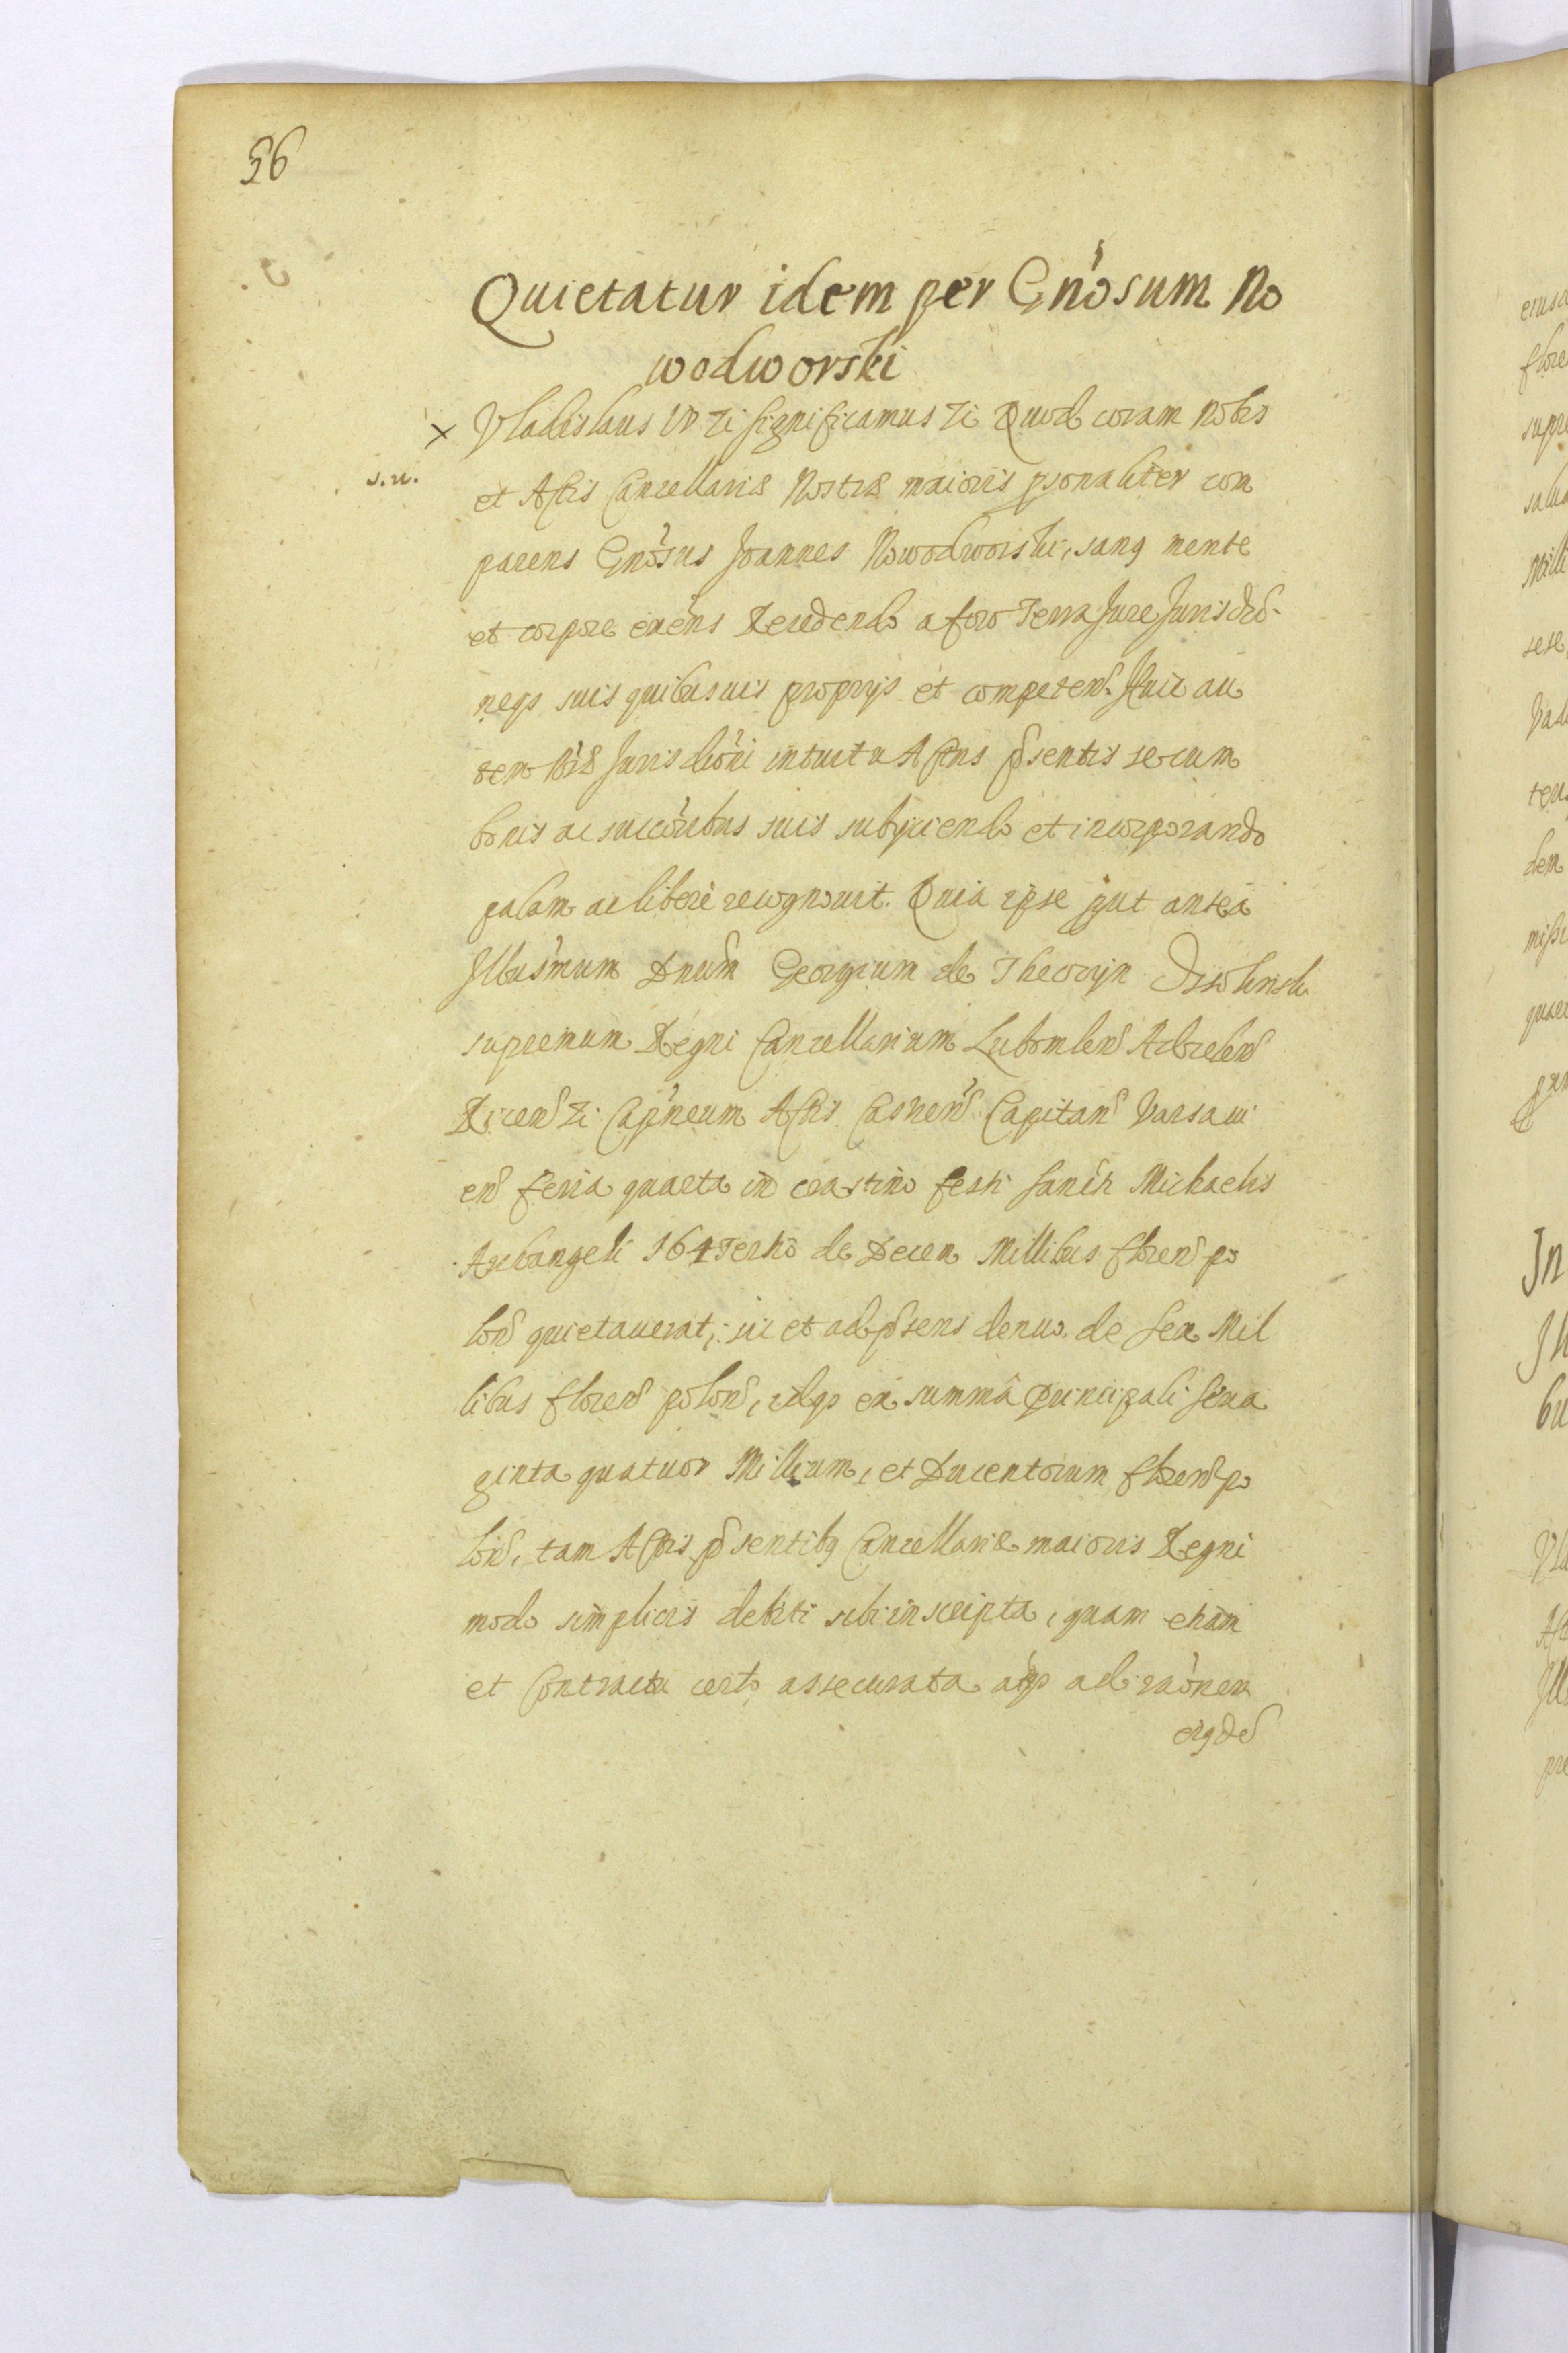 56
Quietatur idem per Gnosum No
wodworski
x Vladislaus IV Zi significamus Zi Quod coram Nobis
s.n.
et Actis Cancellariæ Nostræ maioris psonaliter com
parens Gnosus Joannes Nowodworski, sanq mente
et corpore exens Recedendo a foro Terra Jure Jurisdco-
neqs suis quibusuis proprijs et competen. Huic au
tem Nræ Jurisdconi intuitu Actus psentis se cum
bonis ac succoribus suis subijciendo et incorporando
palam ac libere recognouit. Quia ipse put antea
Illusmum Dnum Georgium de Theczyn Ossolinsk
supremum Regni Cancellarium Lubomlen Adzelen
Ricen Zi Capneum Actis Castren Capitan Varsaui
en feria quarta in crastino festi Sancti Michaelis
Archangeli 164Tertio de Decem Millibus floren po
lon quietauerat, sic et ad psens denuo de Sex Mil
libus floren polon, idqs ex summa principali Sexa
ginta quatuor Millium, et Ducentorum floren po
lon, tam Actis psentibq Cancellariæ maioris Regni
modo simplicis debiti sibi inscripta, quam etiam
et Contractu certo assecurata atqs ad raonem
eiqde